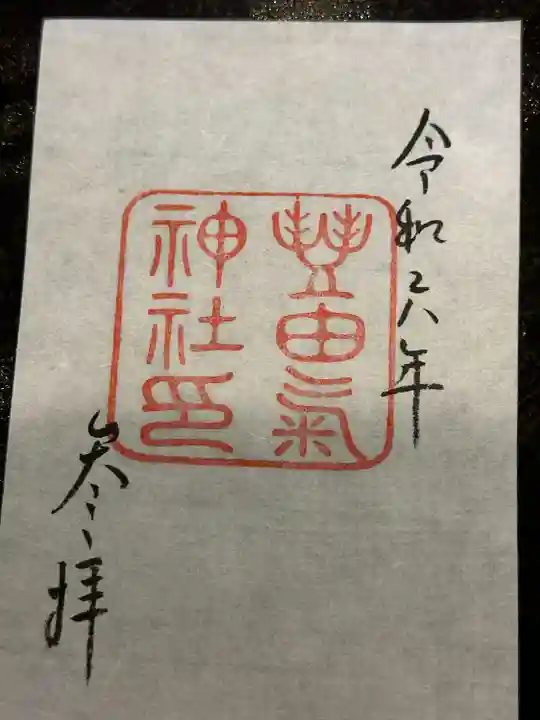 令和六年
豊由氣
神社印
参拝